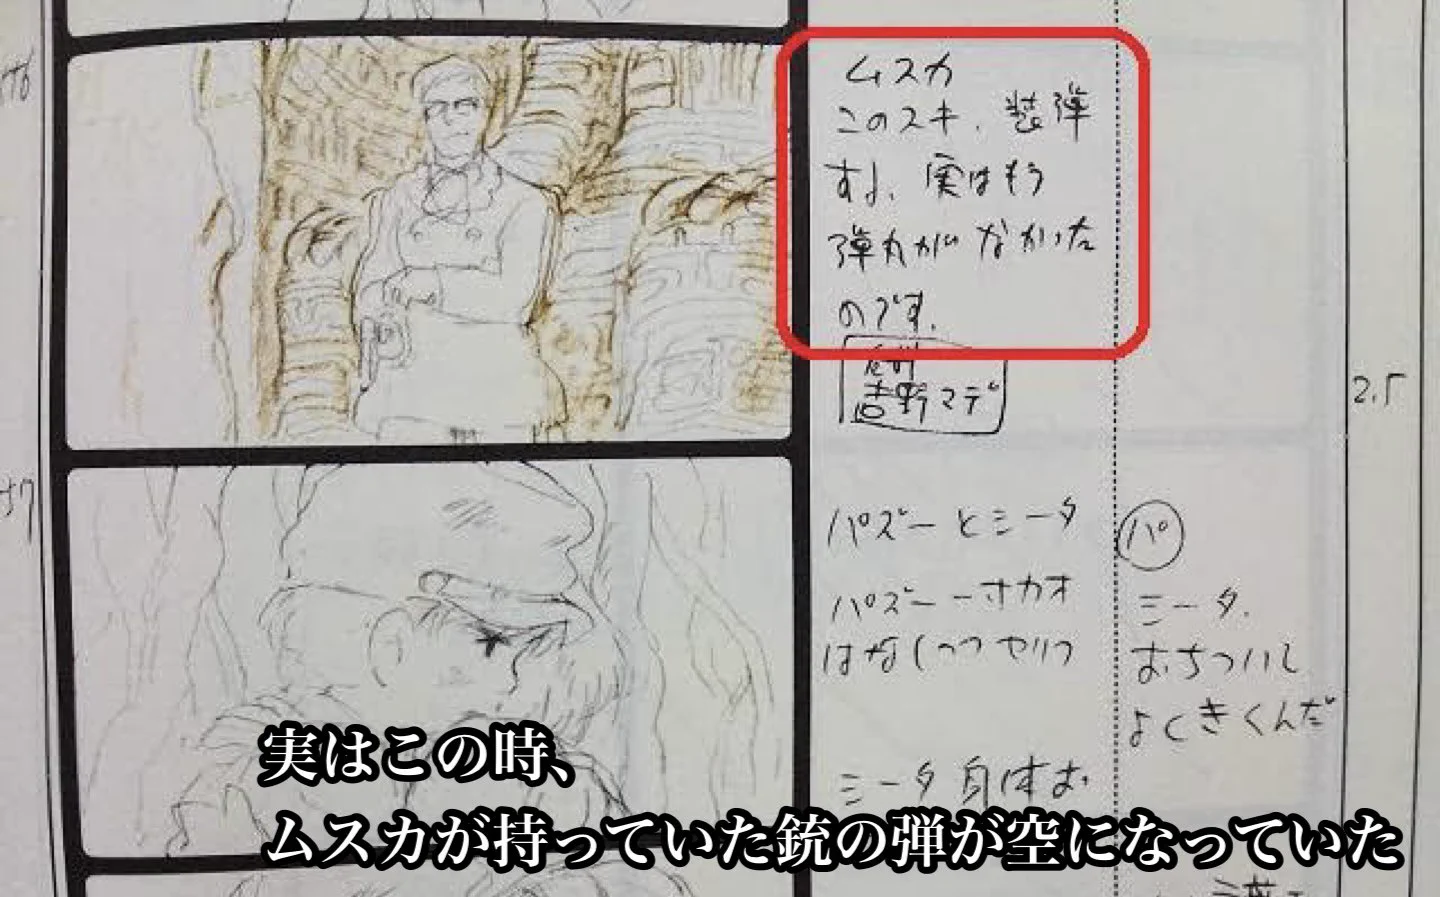 ムスカ
このスキ、装弾
する、実はもう
弾丸がなかった
のです。
吉野マデ
2.5
パズーとシータ
パ
パズー
シータ、
はなしつつ
おちつい
よくきくんだ
シータ身体お
実はこの時、
ムスカが持っていた銃の弾が空になっていた